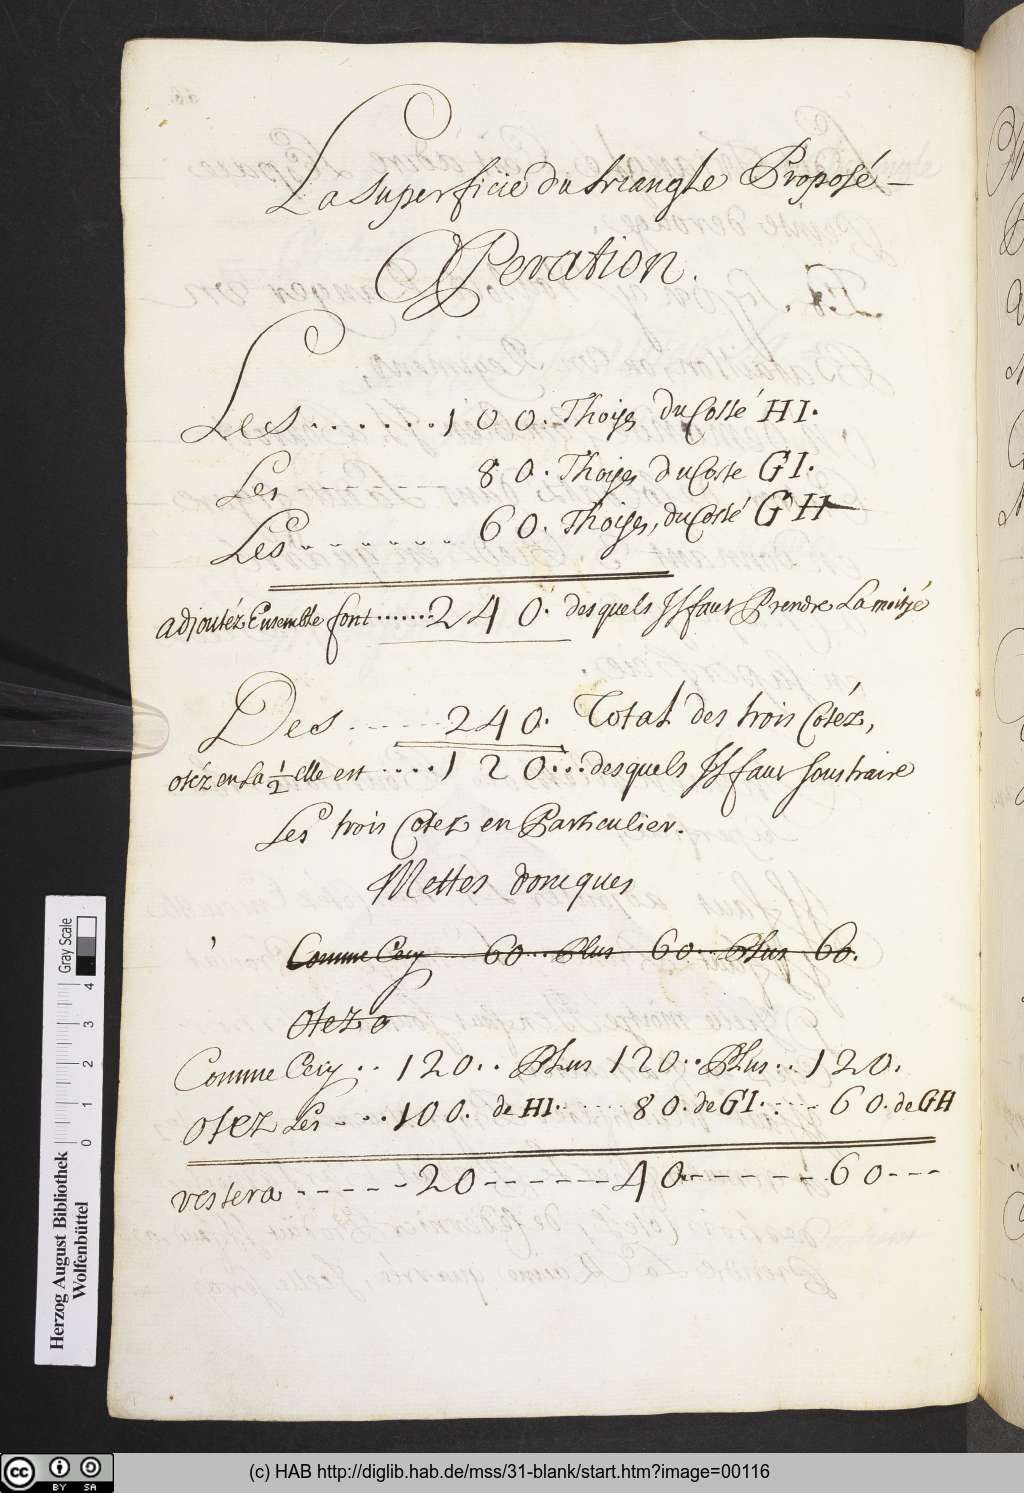 La superficie du triangle Proposé
OPeration.
Les . . . . . . . 100. Thoises du Costé HI.
Les - - - - - - - 80. Thoises du Coste GI.
Les . . . . . . . 60. Thoises, du Costé GH
adjoutéz Ensemble font ....... 240. desquels Il faut Prendre La moityé
Des - - - - - - 240. Total des trois Cotéz,
otéz en La 1/2 elle est .... 120... desquels Il faut soustraire
Les trois Cotez en Particulier.
Mettes doncques
Comme Cecy ... 60... Plus 60... Plus 60.
Otez
Comme Cecy .. 120.. PLus 120.. PLus.. 120.
otez Les - .. 100. de HI. ..... 80. de GI. .... - 60. de GH
restera - - - - - - 20 - - - - - - - 40 - - - - - - - 60 - - -
Gray Scale
0 1 2 3 4
Herzog August Bibliothek
Wolfenbüttel
cc BY SA
(c) HAB http://diglib.hab.de/mss/31-blank/start.htm?image=00116